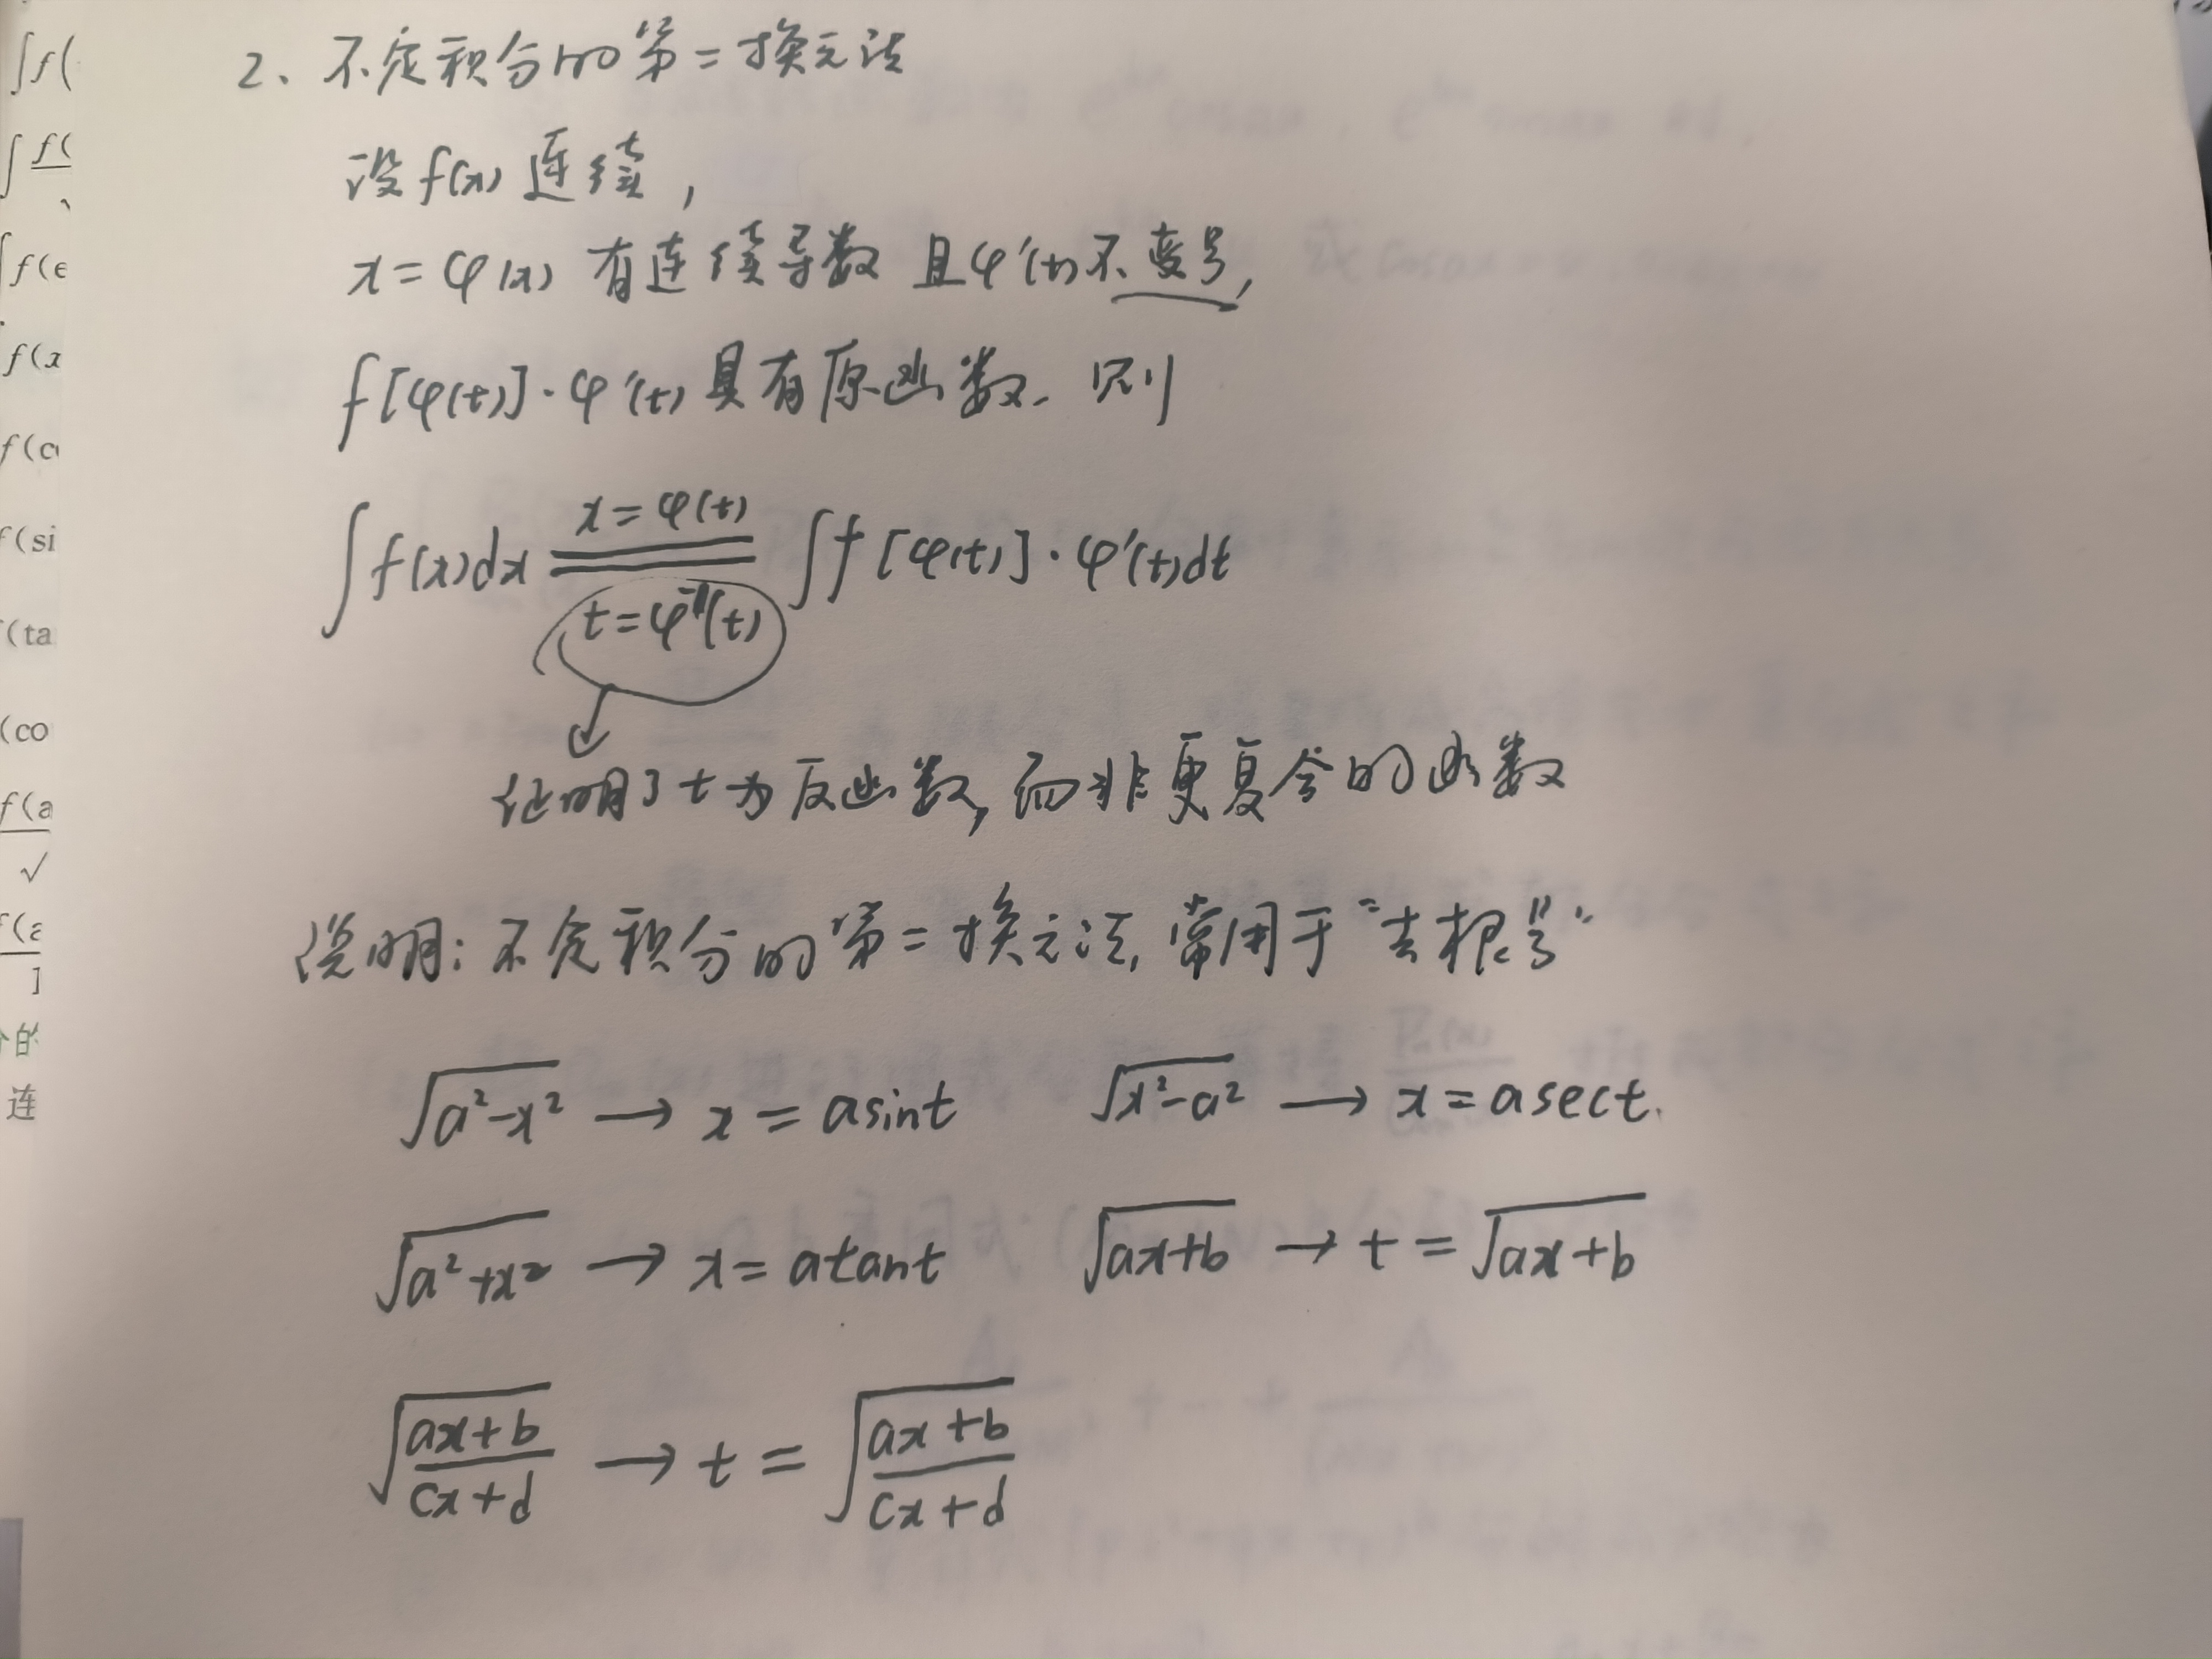 2、不定积分的第二换元法
设f(x)连续,
x=φ(x) 有连续导数 且φ′(t)不变号,
f[φ(t)]·φ′(t)具有原函数. 则
∫f(x)dx x=φ(t) t=φ⁻¹(t) ∫f[φ(t)]·φ′(t)dt
证明了t为反函数,而非更复合的函数
说明:不定积分的第二换元法,常用于“去根号”
√(a²-x²) → x=asint √(x²-a²) → x=asect.
√(a²+x²) → x=atant √(ax+b) → t=√(ax+b)
√((ax+b)/(cx+d)) → t=√((ax+b)/(cx+d))
∫f(
f(
f(e
f(x
f(c
f(si
(ta
(co
f(a
√
(a
]
的
连